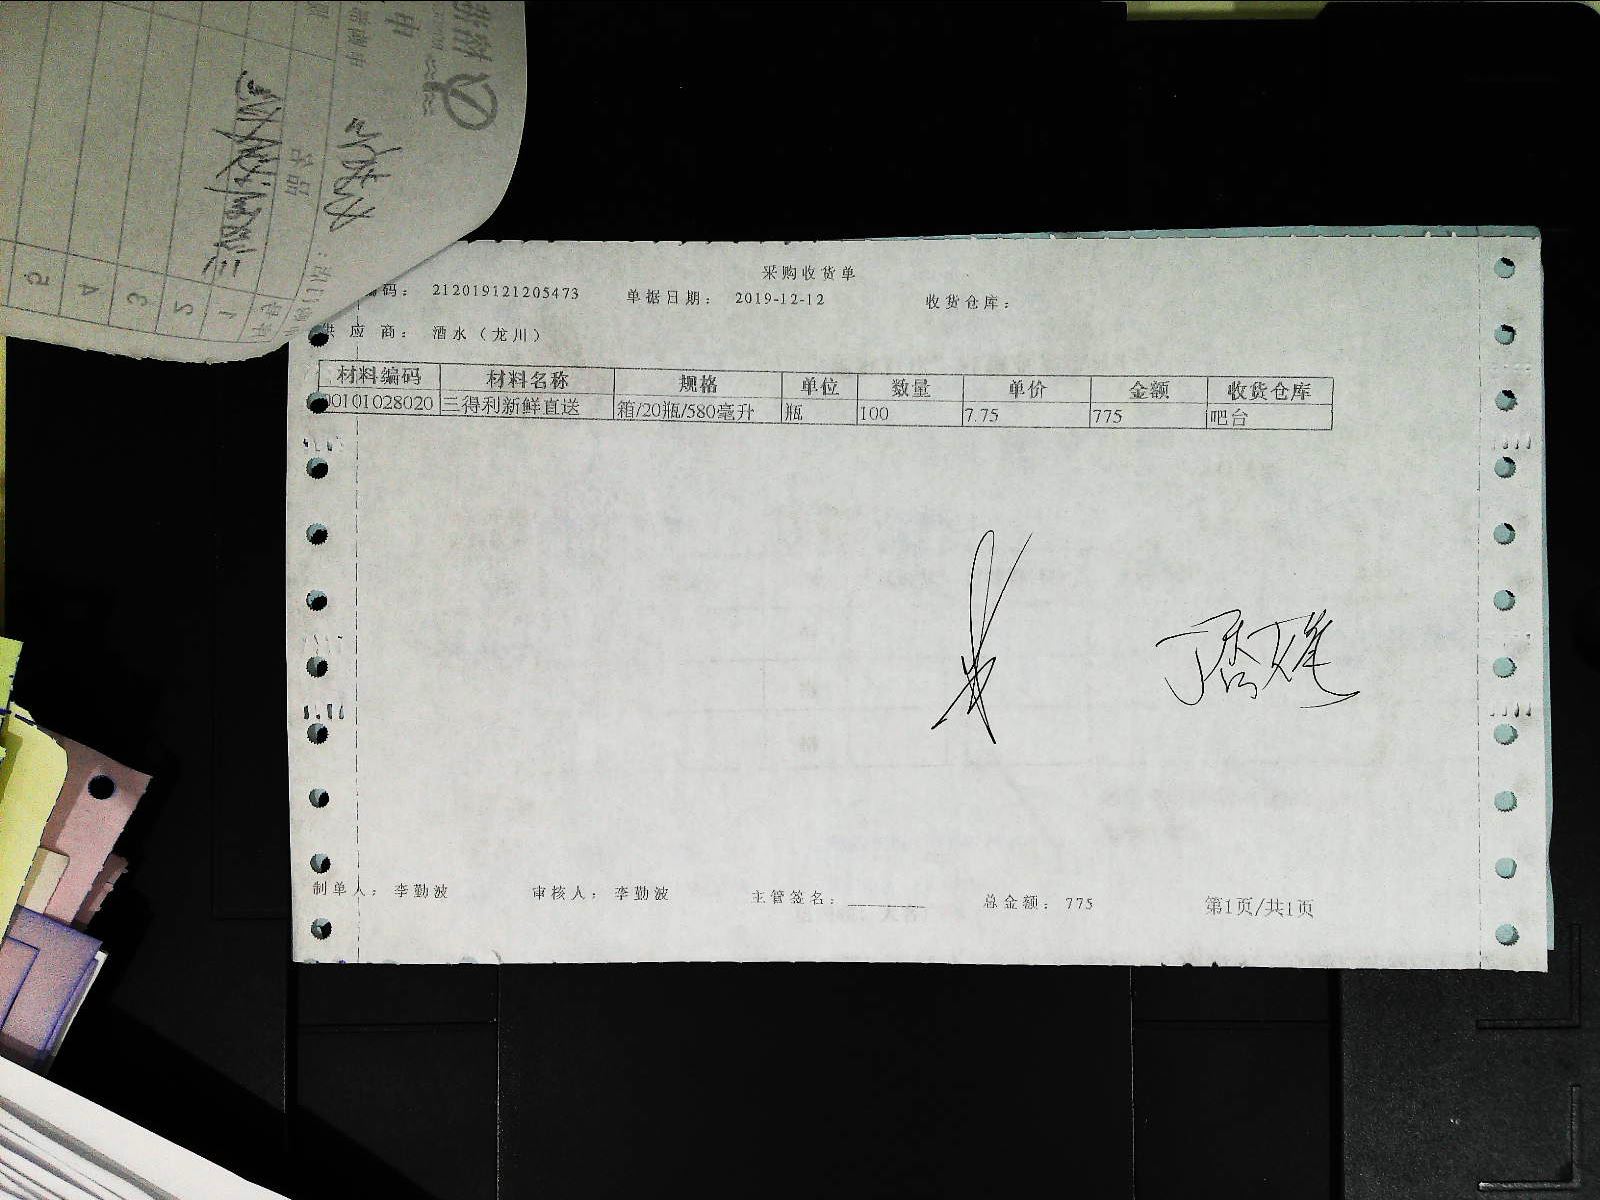 采购收货单
编码： 212019121205473 单据日期： 2019-12-12 收货仓库：
供应商： 酒水（龙川）
材料编码 材料名称 规格 单位 数量 单价 金额 收货仓库
00101028020 三得利新鲜直送 箱/20瓶/580毫升 瓶 100 7.75 775 吧台
制单人： 李勤波 审核人： 李勤波 主管签名：________ 总金额： 775 第1页/共1页
品名
1
2
3
4
5